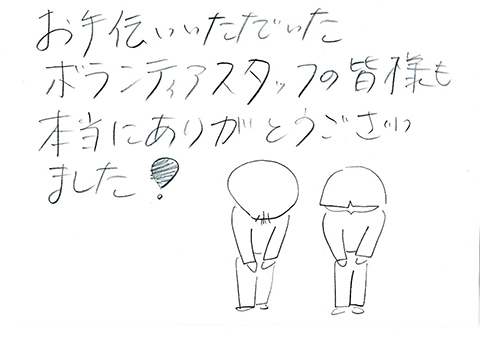 お手伝いいただいた
ボランティアスタッフの皆様も
本当にありがとうござい
ました!